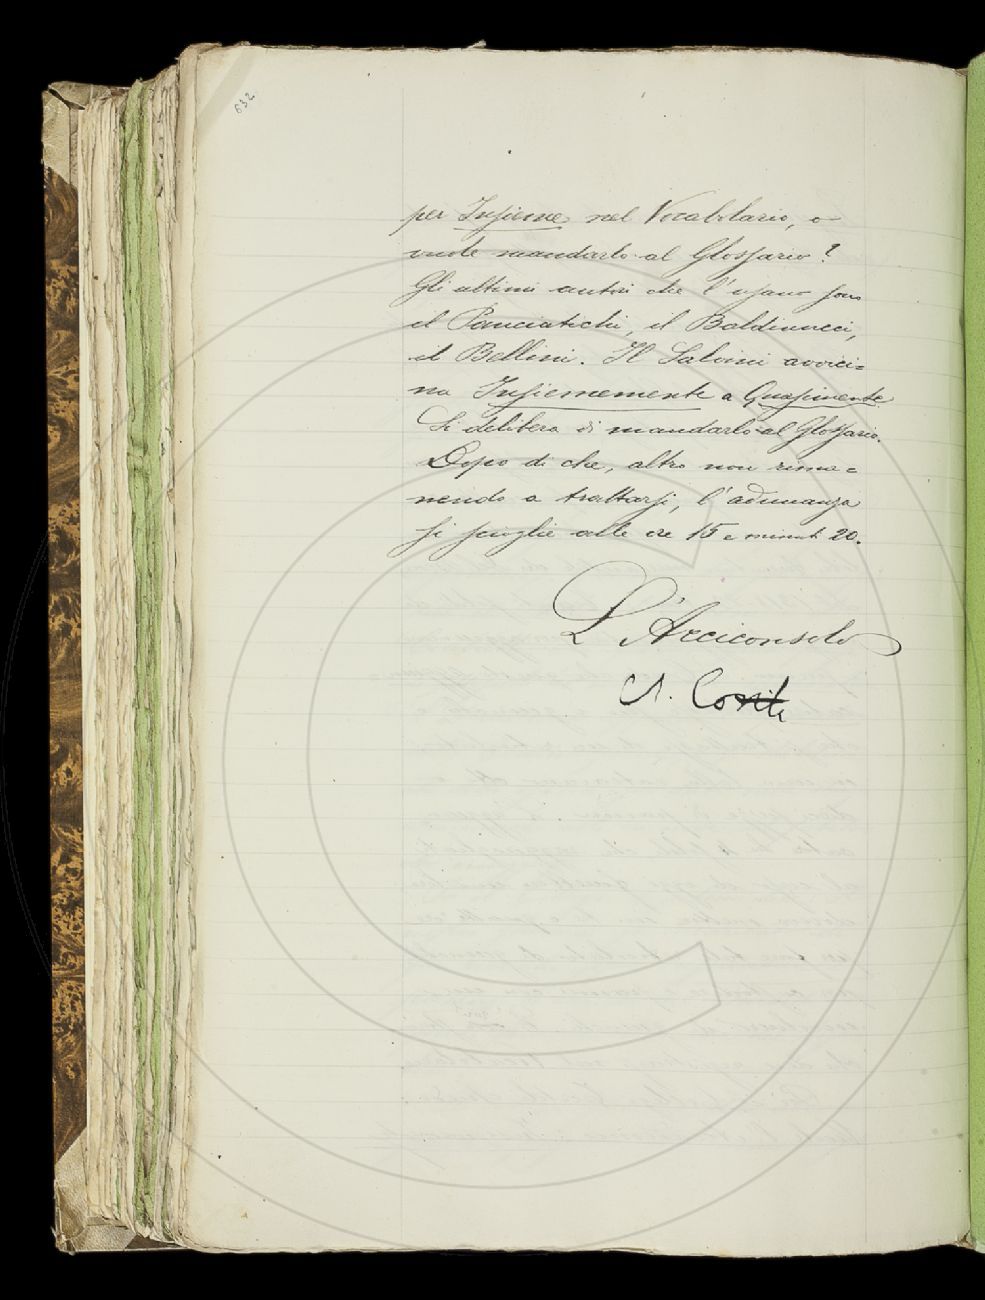 632
per Insieme nel Vocabolario, o
vuole mandarlo al Glossario?
Gli ultimi autori che l'usano sono
il Panciatichi, il Baldinucci,
il Bellini. Il Salvini avvici=
na Insiememente a Quasimente
Si delibera di mandarlo al Glossario.
Dopo di che, altro non rima=
nendo a trattarsi, l'adunanza
si scioglie alle ore 15 e minuti 20.
L'Arciconsolo
A. Conti